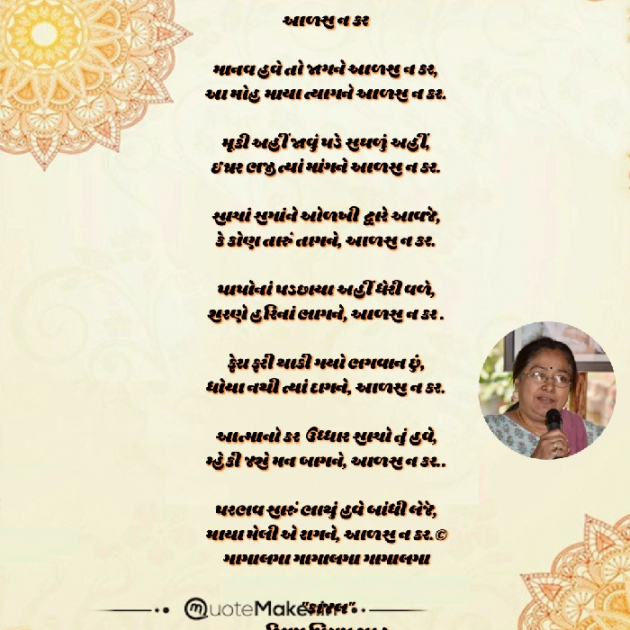 આળસ ન કર
માનવ હવે તો જાગને આળસ ન કર,
આ મોહ માયા ત્યાગને આળસ ન કર.
મૂકી અહીં જાવું પડે સઘળું અહીં,
ઇશ્વર ભજી ત્યાં માંગને આળસ ન કર.
સાચાં સગાંને ઓળખી દ્વારે આવજે,
કે કોણ તારું તાગને, આળસ ન કર.
પાપોનાં પડછાયા અહીં ઘેરી વળે,
શરણે હરિનાં ભાગને, આળસ ન કર .
ફેરા ફરી થાકી ગયો ભગવાન છું,
ધોયા નથી ત્યાં દાગને, આળસ ન કર.
આત્માનો કર ઉધ્ધાર સાચો તું હવે,
મ્હેકી જશે મન બાગને, આળસ ન કર..
પરભવ સારું ભાથું હવે બાંધી લેજે,
માયા મેલી એ રાગને, આળસ ન કર.©
ગાગાલગા ગાગાલગા ગાગાલગા
QuoteMaker